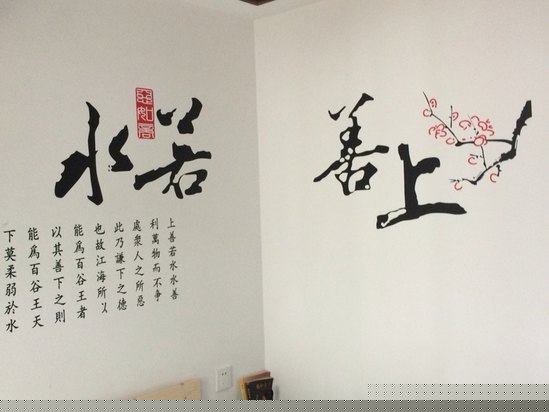 上善
若水
上善若水水善
利萬物而不争
處衆人之所惡
此乃謙下之德
也故江海所以
能爲百谷王者
以其善下之則
能爲百谷王天
下莫柔弱於水